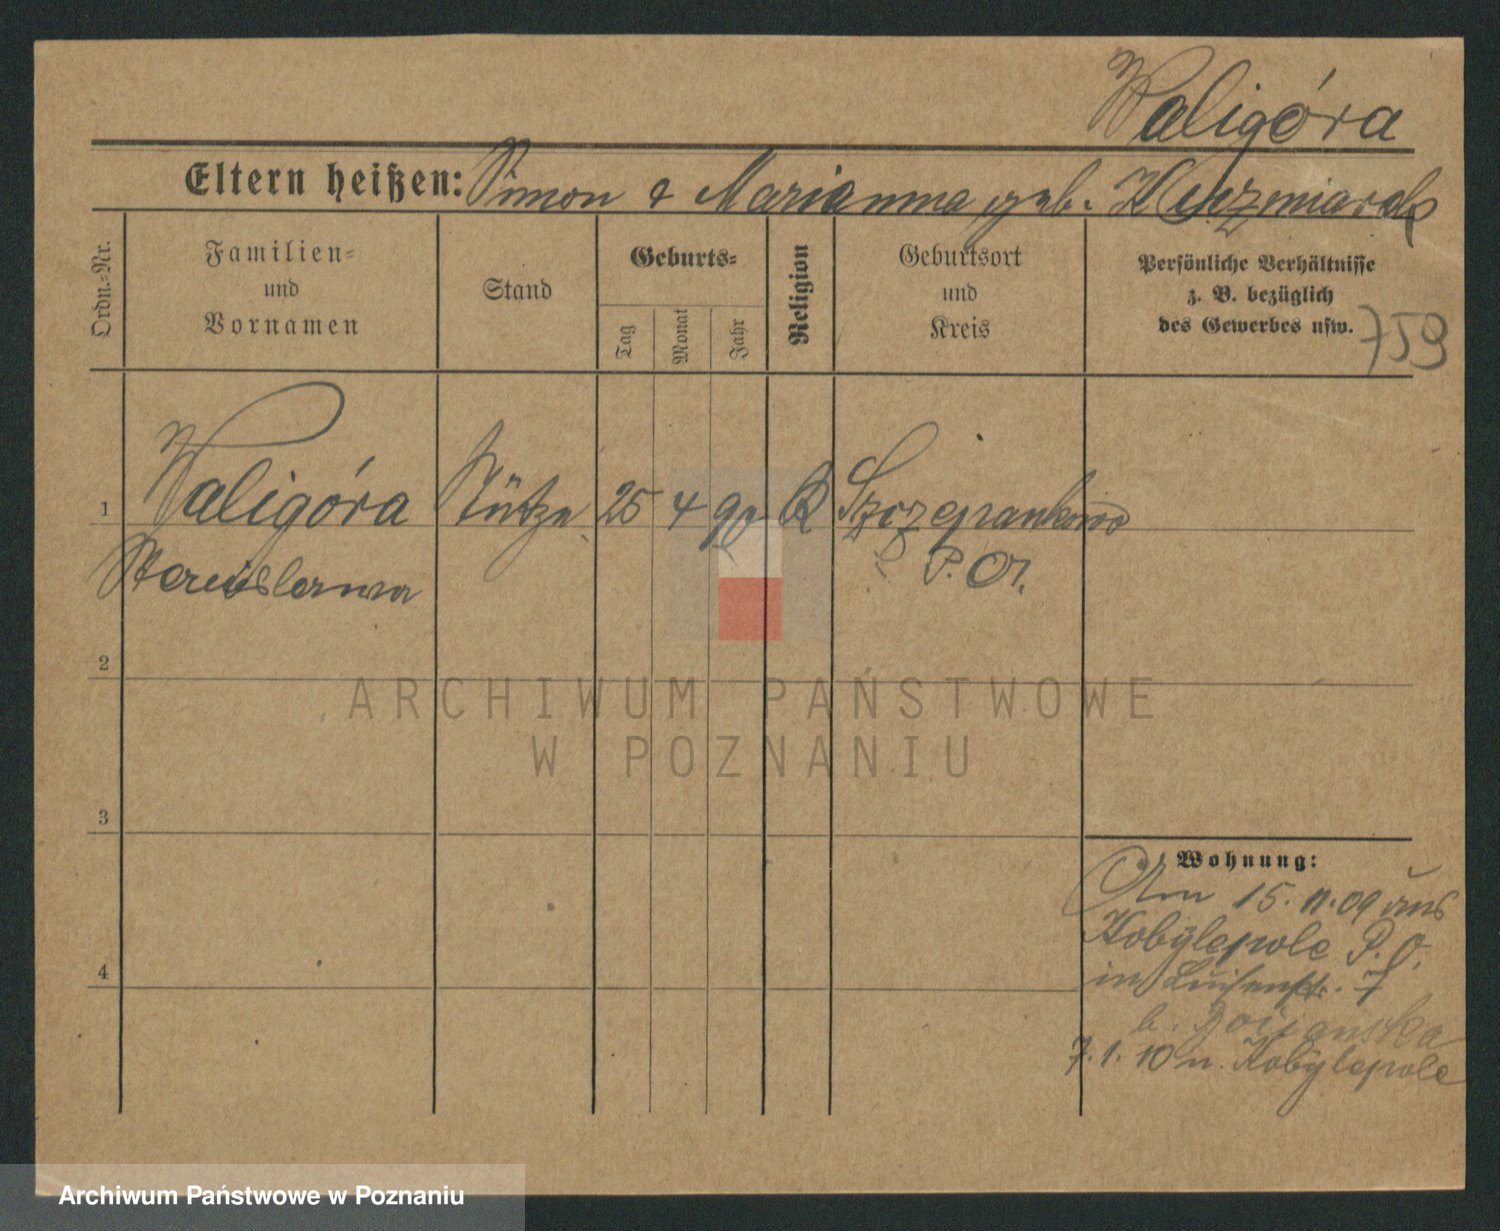 Waligóra
Eltern heißen: Simon & Marianna geb. Kuzmiarek
Ordn.-Nr.
Familien-
und
Vornamen
Stand
Geburts-
Tag
Monat
Jahr
Religion
Geburtsort
und
Kreis
Persönliche Verhältnisse
z. B. bezüglich
des Gewerbes usw.
759
1
Waligóra Stütze 25 4 90 K Szczepankowo
Stanislawa P. O.
2
3
4
Wohnung:
Am 15. 11. 09 aus
Kobylepole P. O.
in Luisenstr. 7
b.
7. 1. 10 n. Kobylepole
ARCHIWUM PAŃSTWOWE
W POZNANIU
Archiwum Państwowe w Poznaniu